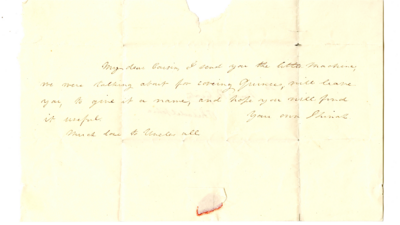 My dear Cousin I send you the little Machine,
we were talking about for , will leave
you, to give it a name, and hope you will find
it useful. Your own
Much love to Uncles all